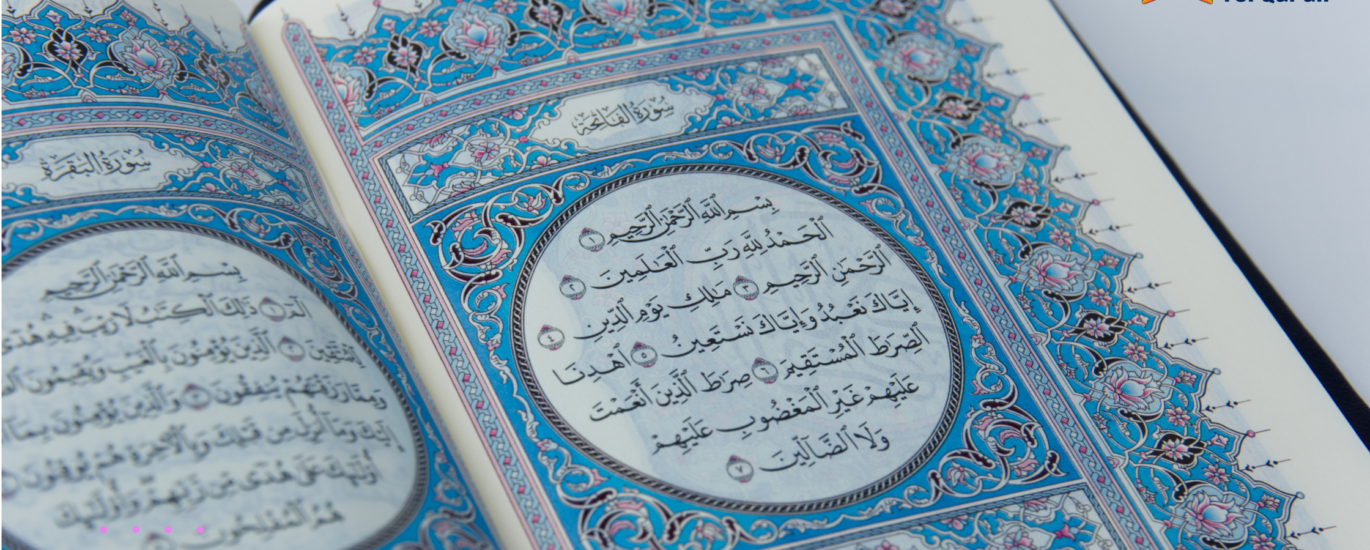 سُورَةُ الفَاتِحَة
بِسْمِ ٱللَّهِ ٱلرَّحْمَٰنِ ٱلرَّحِيمِ ١
ٱلْحَمْدُ لِلَّهِ رَبِّ ٱلْعَٰلَمِينَ ٢
ٱلرَّحْمَٰنِ ٱلرَّحِيمِ ٣ مَٰلِكِ يَوْمِ ٱلدِّينِ ٤
إِيَّاكَ نَعْبُدُ وَإِيَّاكَ نَسْتَعِينُ ٥ ٱهْدِنَا
ٱلصِّرَٰطَ ٱلْمُسْتَقِيمَ ٦ صِرَٰطَ ٱلَّذِينَ أَنْعَمْتَ
عَلَيْهِمْ غَيْرِ ٱلْمَغْضُوبِ عَلَيْهِمْ
وَلَا ٱلضَّآلِّينَ ٧
سُورَةُ البَقَرَةِ
بِسْمِ ٱللَّهِ ٱلرَّحْمَٰنِ ٱلرَّحِيمِ
الٓمٓ ١ ذَٰلِكَ ٱلْكِتَٰبُ لَا رَيْبَ فِيهِ هُدًى
لِّلْمُتَّقِينَ ٢ ٱلَّذِينَ يُؤْمِنُونَ بِٱلْغَيْبِ وَيُقِيمُونَ
وَمِمَّا رَزَقْنَٰهُمْ يُنفِقُونَ ٣ وَٱلَّذِينَ يُؤْمِنُونَ بِمَا
إِلَيْكَ وَمَآ أُنزِلَ مِن قَبْلِكَ وَبِٱلْأٓخِرَةِ هُمْ يُوقِنُونَ
أُو۟لَٰٓئِكَ عَلَىٰ هُدًى مِّن رَّبِّهِمْ وَأُو۟لَٰٓئِكَ
هُمُ ٱلْمُفْلِحُونَ